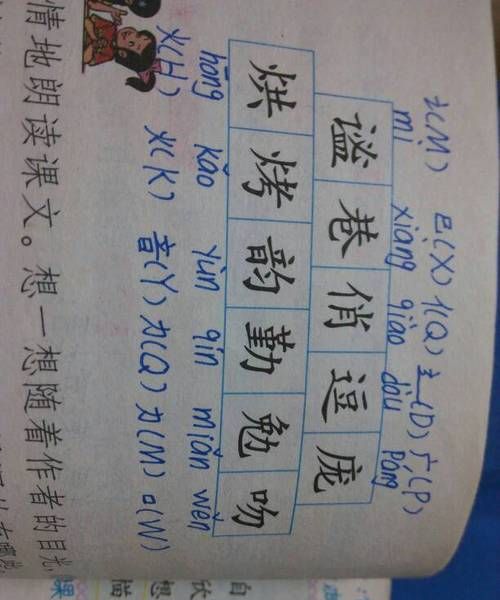 讠(M) 巳(X) 亻(Q) 辶(D) 广(P)
mì xiàng qiào dòu páng
谧 巷 俏 逗 庞
烘 烤 韵 勤 勉 吻
hōng kǎo yùn qín miǎn wěn
火(H) 火(K) 音(Y) 力(Q) 力(M) 口(W)
情地朗读课文。想一想随着作者的目光